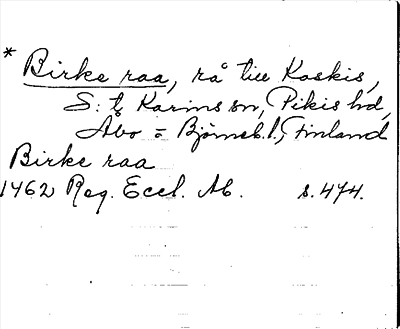 * Birke raa, rå till Kaskis,
S:t Karins sn, Pikis hd,
Åbo = Björneb. l., Finland
Birke raa
1462 Reg. Eccl. Ab. s. 474.